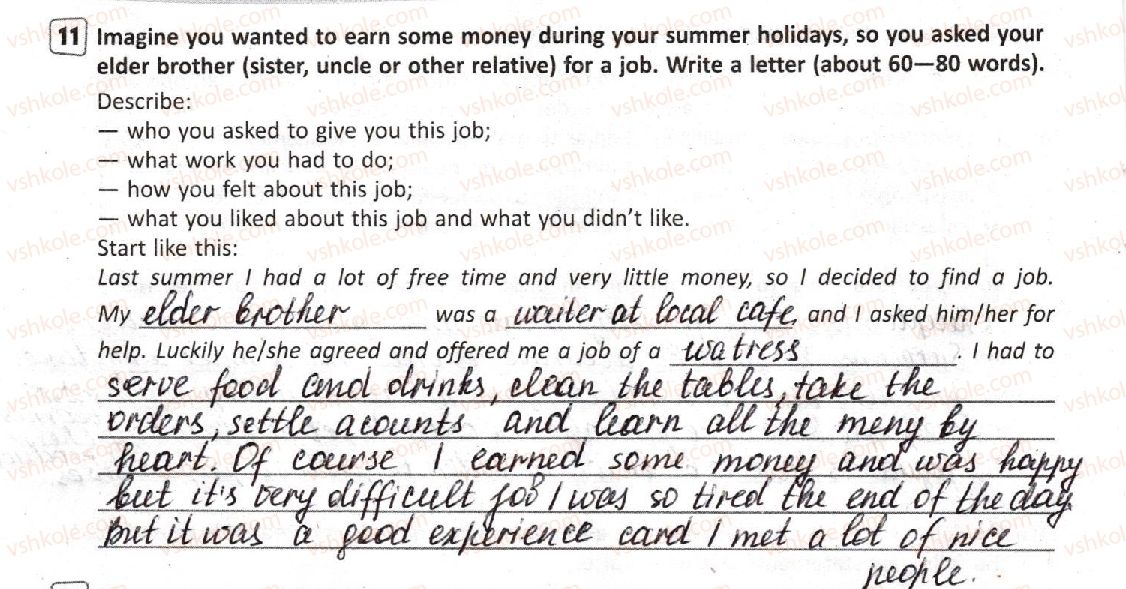 11 Imagine you wanted to earn some money during your summer holidays, so you asked your
elder brother (sister, uncle or other relative) for a job. Write a letter (about 60—80 words).
Describe:
— who you asked to give you this job;
— what work you had to do;
— how you felt about this job;
— what you liked about this job and what you didn't like.
Start like this:
Last summer I had a lot of free time and very little money, so I decided to find a job.
My elder brother was a waiter at local cafe, and I asked him/her for
help. Luckily he/she agreed and offered me a job of a watress. I had to
serve food and drinks, clean the tables, take the
orders, settle acounts and learn all the meny by
heart. Of course I earned some money and was happy
but it's very difficult job I was so tired the end of the day
But it was a good experience and I met a lot of nice
people.